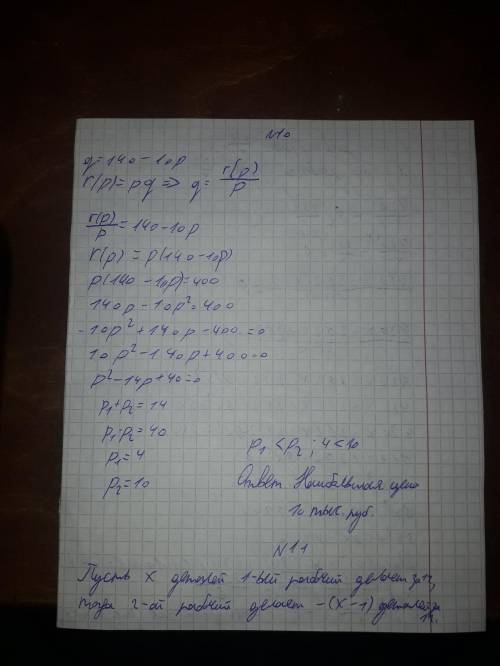 N10
q=140-10p
r(p)=pq => q= r(p)/p
r(p)/p=140-10p
r(p)=p(140-10p)
p(140-10p)=400
140p-10p²=400
-10p²+140p-400=0
10p²-140p+400=0
p²-14p+40=0
p₁+p₂=14
p₁·p₂=40
p₁=4
p₂=10
p₁<p₂; 4<10
Ответ. Наибольшая цена
10 тыс. руб.
N11
Пусть x деталей 1-ый рабочий делает за 1ч,
тогда 2-ой рабочий делает -(x-1) деталей за
1ч.